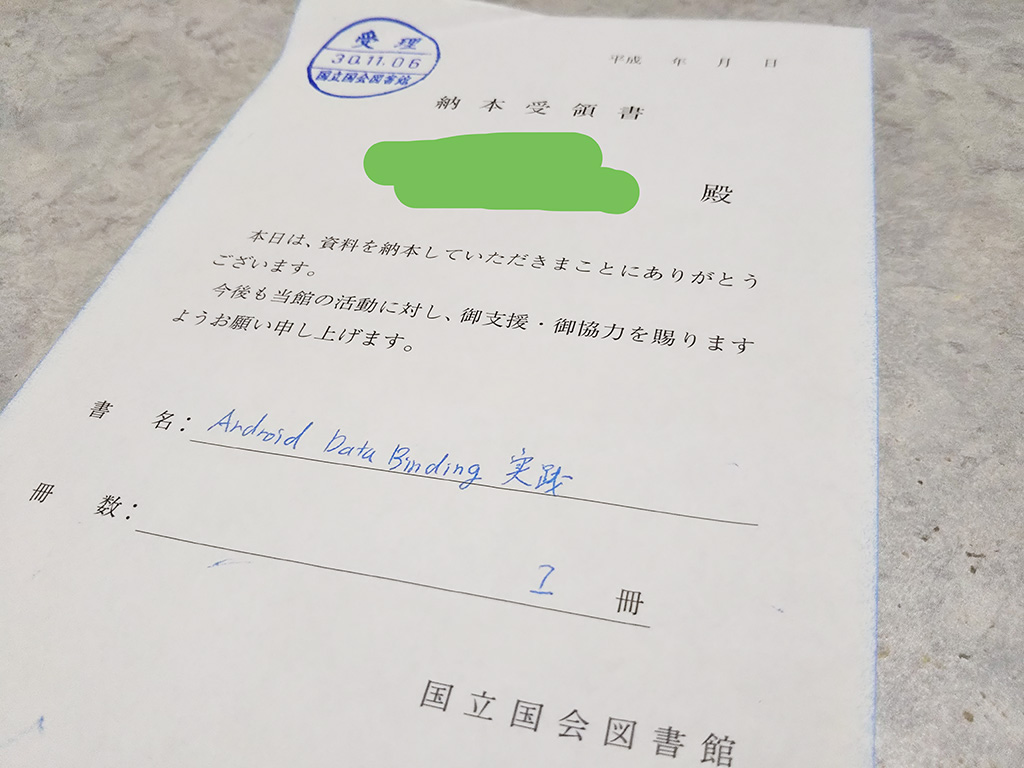 受理
30.11.06
国立国会図書館
平成 年 月 日
納本受領書
殿
本日は、資料を納本していただきまことにありがとう
ございます。
今後も当館の活動に対し、御支援・御協力を賜ります
ようお願い申し上げます。
書名：Android Data Binding 実践
冊数：1 冊
国立国会図書館